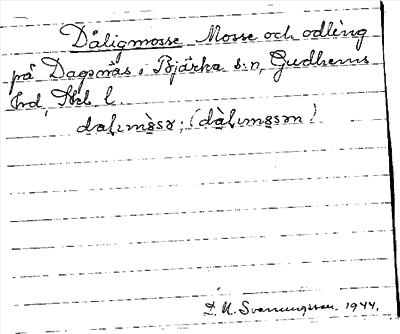 Dåligmosse Mosse och odling
på Dagsnäs, Bjärka s:n, Gudhems
hd, Skb. l.
dałımòsə; (dàłımosən)
D. A. Svenningsson. 1944.